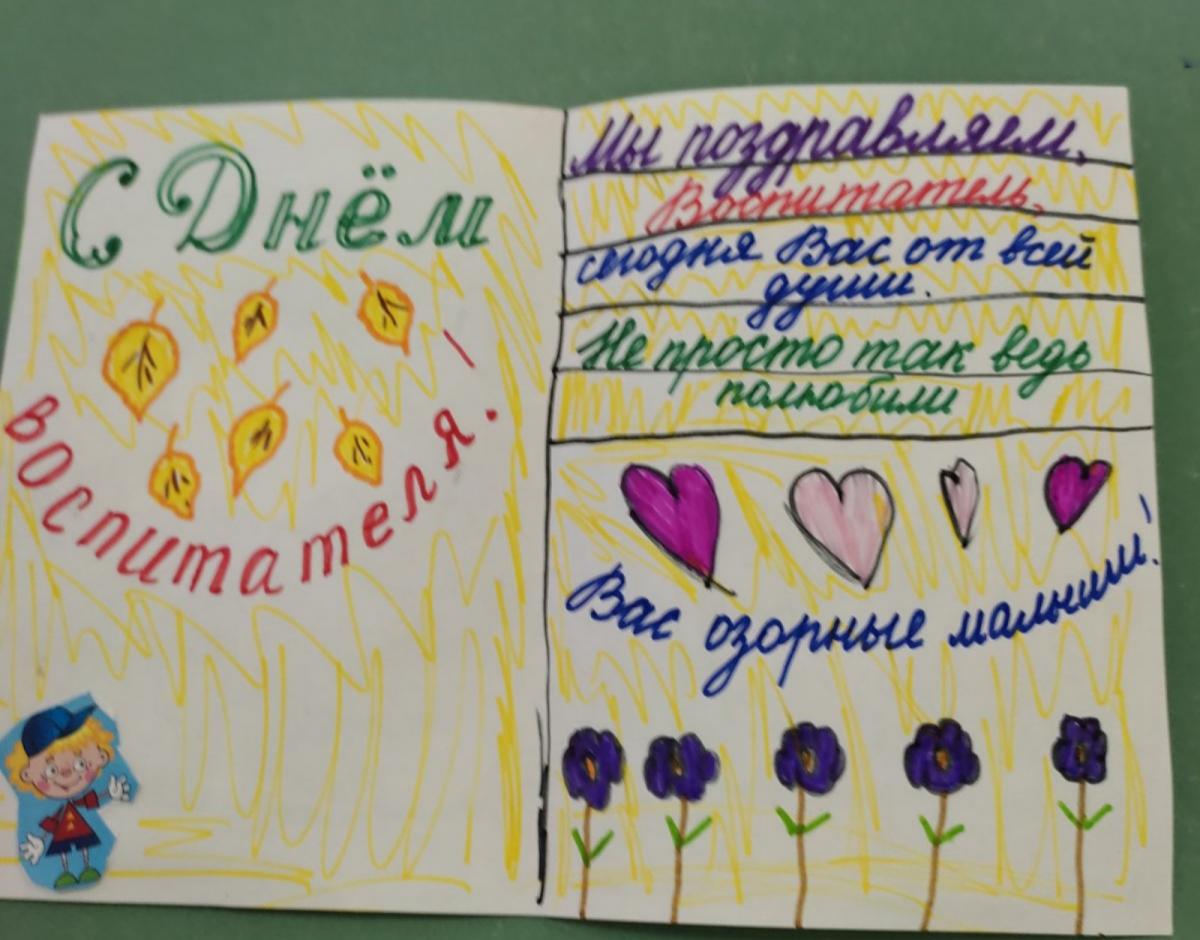 С Днём
воспитателя!
Мы поздравляем,
Воспитатель,
сегодня Вас от всей
души.
Не просто так ведь
полюбили
Вас озорные малыши!